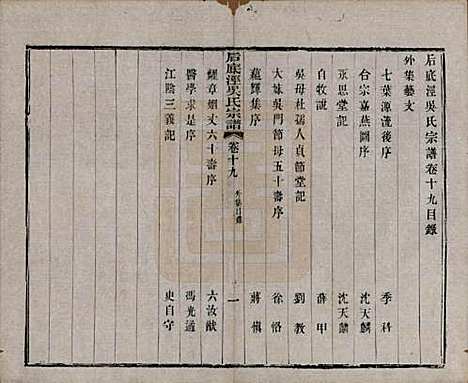 后底涇吳氏宗譜卷十九目錄
外集藝文
七葉源流後序 季科
合宗嘉燕圖序 沈天麟
永思堂記 沈天麟
自牧說 薛甲
吳母杜孺人貞節堂記 劉教
大妹吳門節母五十壽序 徐恪
蘊輝集序 蔣愼
后底涇吳氏宗譜 卷十九 外集目錄 一
耀章烟丈六十壽序 六汝猷
醫學求是序 馮光遹
江陰三義記 史自守